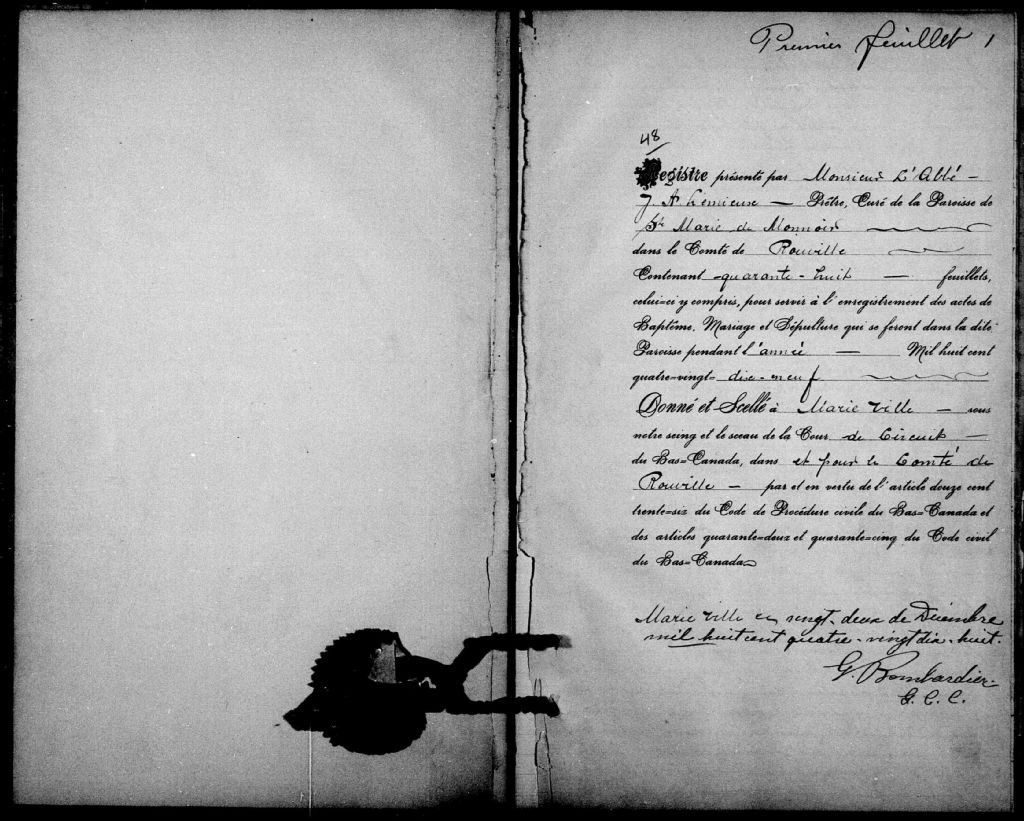 Premier feuillet 1
48
Registre présenté par Monsieur L'Abbé —
J. A Lemieux — Prêtre, Curé de la Paroisse de
Ste Marie de Monnoir
dans le Comté de Rouville
Contenant quarante-huit — feuillets,
celui=ci y compris, pour servir à l'enregistrement des actes de
Baptême, Mariage et Sépulture qui se feront dans la dite
Paroisse pendant l'année — Mil huit cent
quatre=vingt= dix-neuf
Donné et Scellé à Marieville — sous
notre seing et le sceau de la Cour de Circuit —
du Bas=Canada, dans et pour le Comté de
Rouville — par et en vertu de l'article douze cent
trente=six du Code de Procédure civile du Bas=Canada et
des articles quarante=deux et quarante=cinq du Code civil
du Bas=Canada.
Marieville ce vingt-deux de Décembre
mil huit cent quatre-vingt dix-huit.
G. Bombardier
G. C. C.